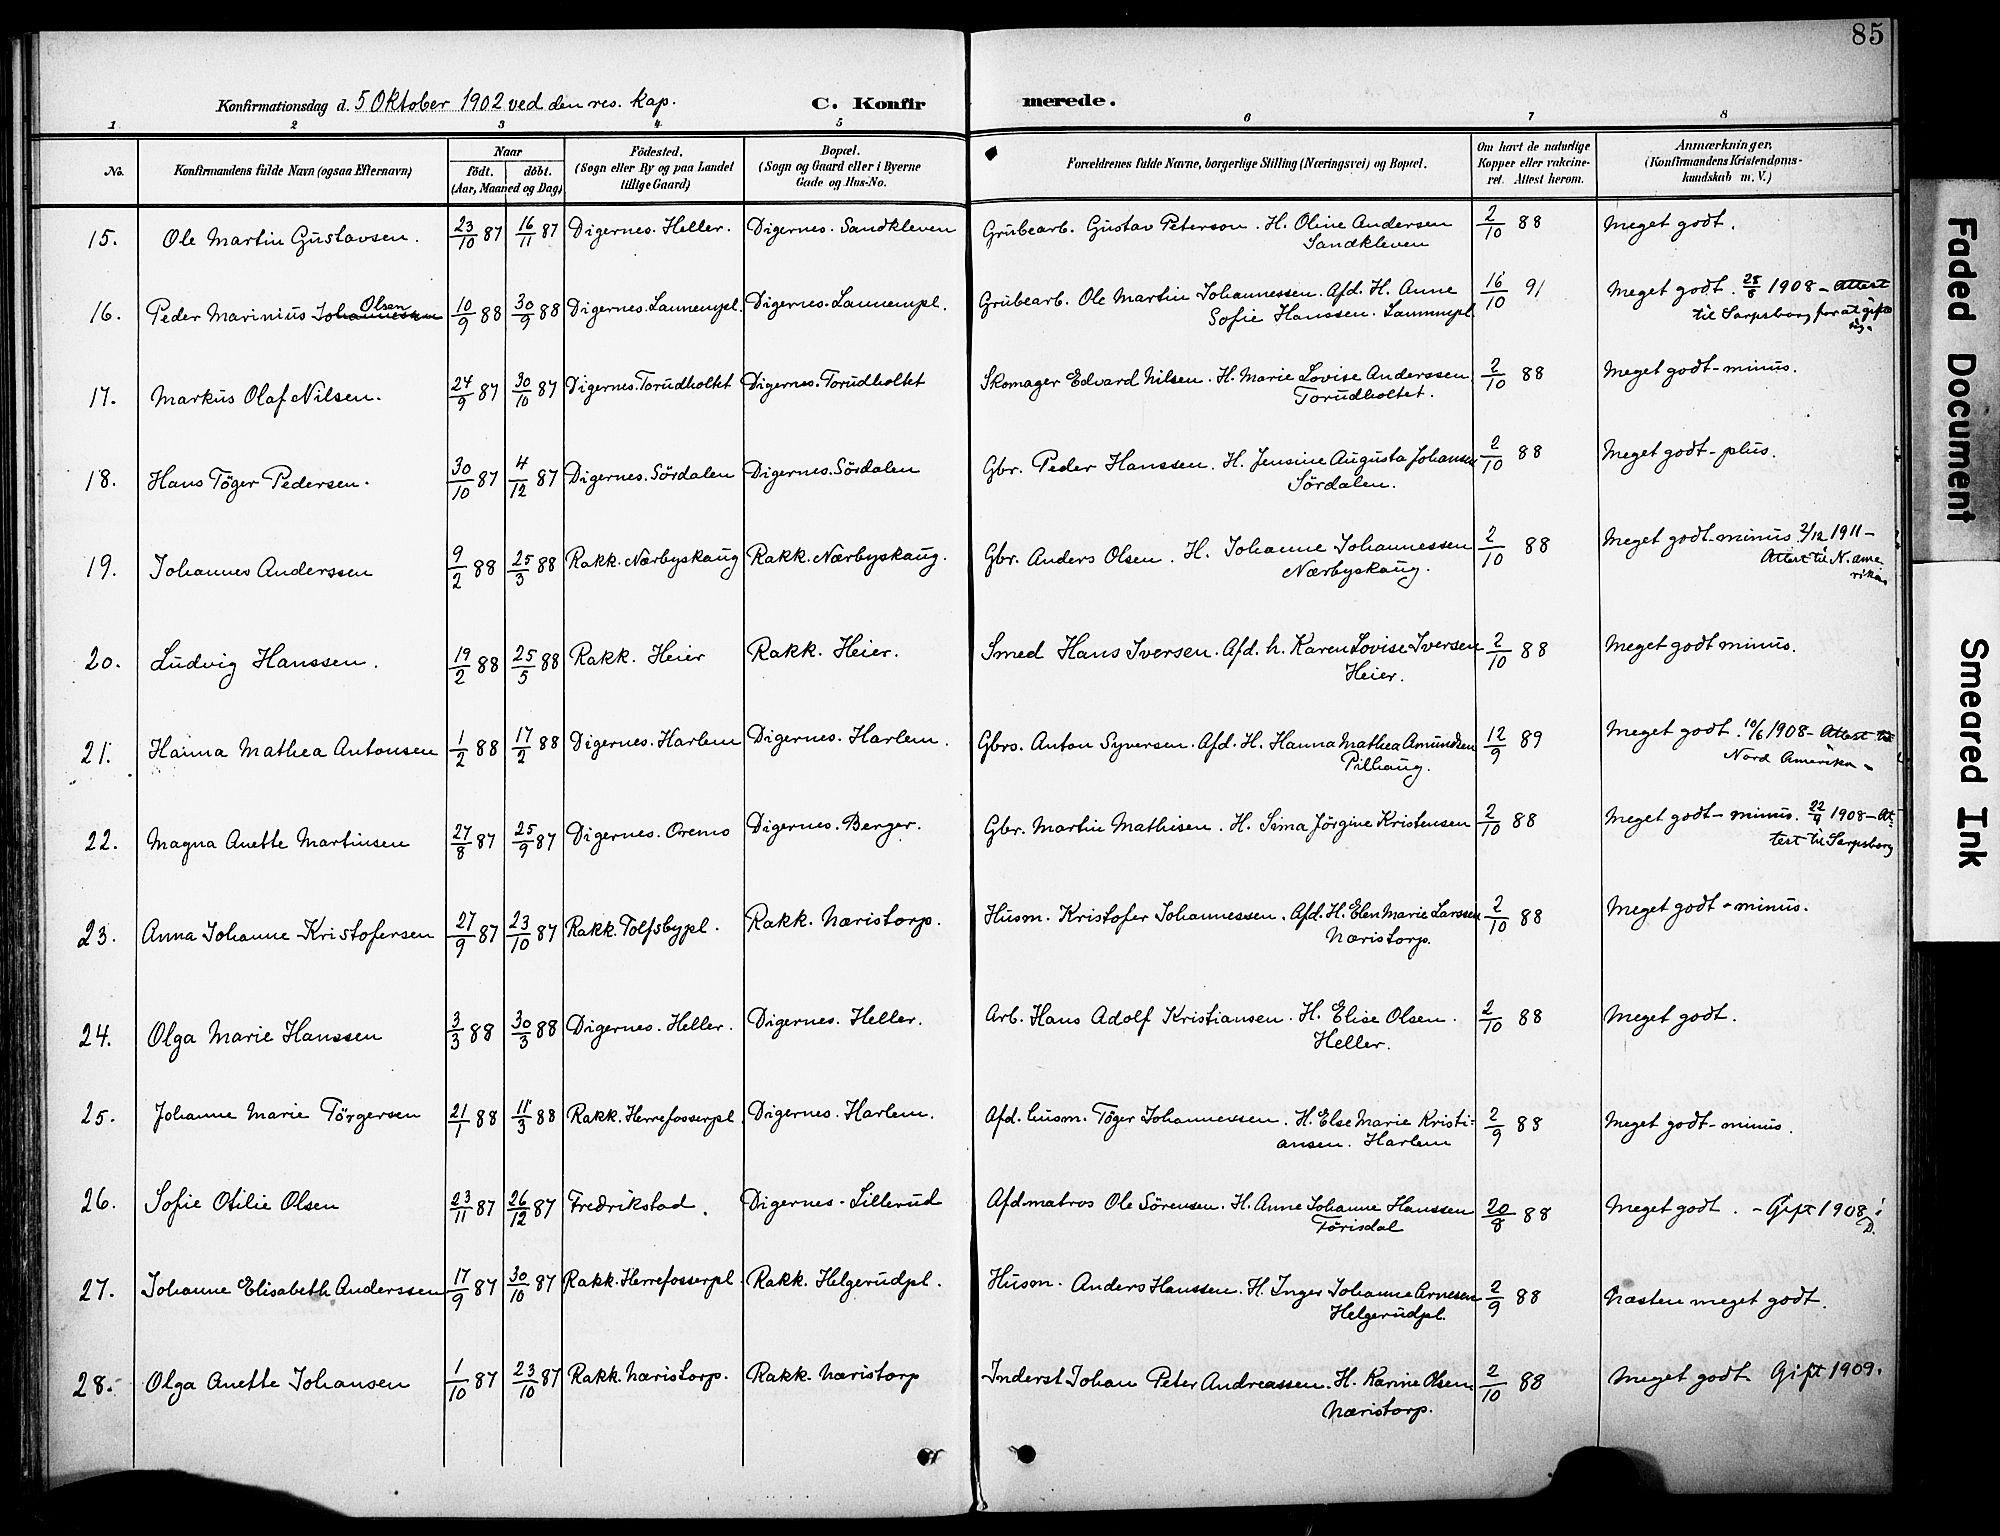 85
Konfirmationsdag d. 5 Oktober 1902 ved den res. kap. C. Konfir merede.
1 2 3 4 5 6 7 8
No. Konfirmandens fulde Navn (ogsaa Efternavn) Naar født. døbt. (Aar, Maaned og Dag) Fødested. (Sogn eller By og paa Landet tillige Gaard) Bopæl. (Sogn og Gaard eller i Byerne Gade og Hus-No. Forældrenes fulde Navne, borgerlige Stilling (Næringsvei) og Bopæl. Om havt de naturlige Kopper eller vakcineret. Attest herom. Anmærkninger, (Konfirmandens Kristendomskundskab m. V.)
15. Ole Martin Gustavsen. 23/10 87 16/11 87 Digernes. Heller. Digernes. Sandkleven Grubearb. Gustav Peterson. H. Oline Andersen 2/10 88 Meget godt.
Sandkleven
16. Peder Marinius Johannessen Olsen 10/9 88 30/9 88 Digernes. Lannempl. Digernes. Lannempl. Grubearb. Ole Martin Johannessen. Afd. H. Anne 16/10 91 Meget godt. 28/8 1908 - Attest
Sofie Hanssen. Lannempl til Sarpsborg for at gifte
sig.
17. Markus Olaf Nilsen. 24/9 87 30/10 87 Digernes. Torudholtet Digernes. Torudholtet Skomager Edvard Nilsen. H. Marie Lovise Anderssen 2/10 88 Meget godt-minus.
Torudholtet.
18. Hans Töger Pedersen. 30/10 87 4/12 87 Digernes. Sördalen Digernes. Sördalen Gbr. Peder Hanssen. H. Jensine Augusta Johansen 2/10 88 Meget godt-plus.
Sördalen.
19. Johannes Anderssen 9/2 88 25/3 88 Rakk. Nærbyskaug Rakk. Nærbyskaug. Gbr. Anders Olsen. H. Johanne Johannessen 2/10 88 Meget godt-minus. 2/12 1911 -
Nærbyskaug. Attest til N. Ame
rika
20. Ludvig Hanssen. 19/2 88 25/5 88 Rakk. Heier Rakk. Heier. Smed Hans Iversen. Afd. h. Karen Lovise Iversen 2/10 88 Meget godt minus.
Heier.
21. Hanna Mathea Antonsen 1/2 88 17/2 88 Digernes. Harlem Digernes. Harlem. Gbrs. Anton Syversen. Afd. H. Hanna Mathea Amundsen 12/9 89 Meget godt. 10/6 1908 - Attest til
Pilhaug. Nord Amerika -
22. Magna Anette Martinsen 27/8 87 25/9 87 Digernes. Oremo Digernes. Berger. Gbr. Martin Mathisen. H. Sima Jörgine Kristensen 2/10 88 Meget godt-minus. 22/4 1908 - At-
test til Sarpsborg
23. Anna Johanne Kristofersen 27/9 87 23/10 87 Rakk. Tolfsbypl. Rakk. Næristorp. Husm. Kristofer Johannessen. Afd. H. Elen Marie Larssen 2/10 88 Meget godt-minus.
Næristorp.
24. Olga Marie Hanssen 3/3 88 30/3 88 Digernes. Heller. Digernes. Heller. Arb. Hans Adolf Kristiansen. H. Elise Olsen. 2/10 88 Meget godt.
Heller.
25. Johanne Marie Törgersen 21/1 88 11/3 88 Rakk. Herrefosserpl Digernes. Harlem. Afd. husm. Töger Johannessen. H. Else Marie Kristi- 2/9 88 Meget godt-minus.
ansen. Harlem
26. Sofie Otilie Olsen 23/11 87 26/12 87 Fredrikstad. Digernes-Lillerud Afd matros Ole Sörensen. H. Anne Johanne Hanssen 20/8 88 Meget godt. - Gift 1908 i
Torisdal D.
27. Johanne Elisabeth Anderssen 17/9 87 30/10 87 Rakk. Herrefosserpl. Rakk. Helgerudpl. Husm. Anders Hanssen. H. Inger Johanne Arnesen 2/9 88 Næsten meget godt.
Helgerudpl.
28. Olga Anette Johansen 1/10 87 23/10 87 Rakk. Næristorp. Rakk. Næristorp Inderst Johan Peter Andreassen. H. Karine Olsen 2/10 88 Meget godt. Gift 1909.
Næristorp.
Faded Document
Smeared Ink